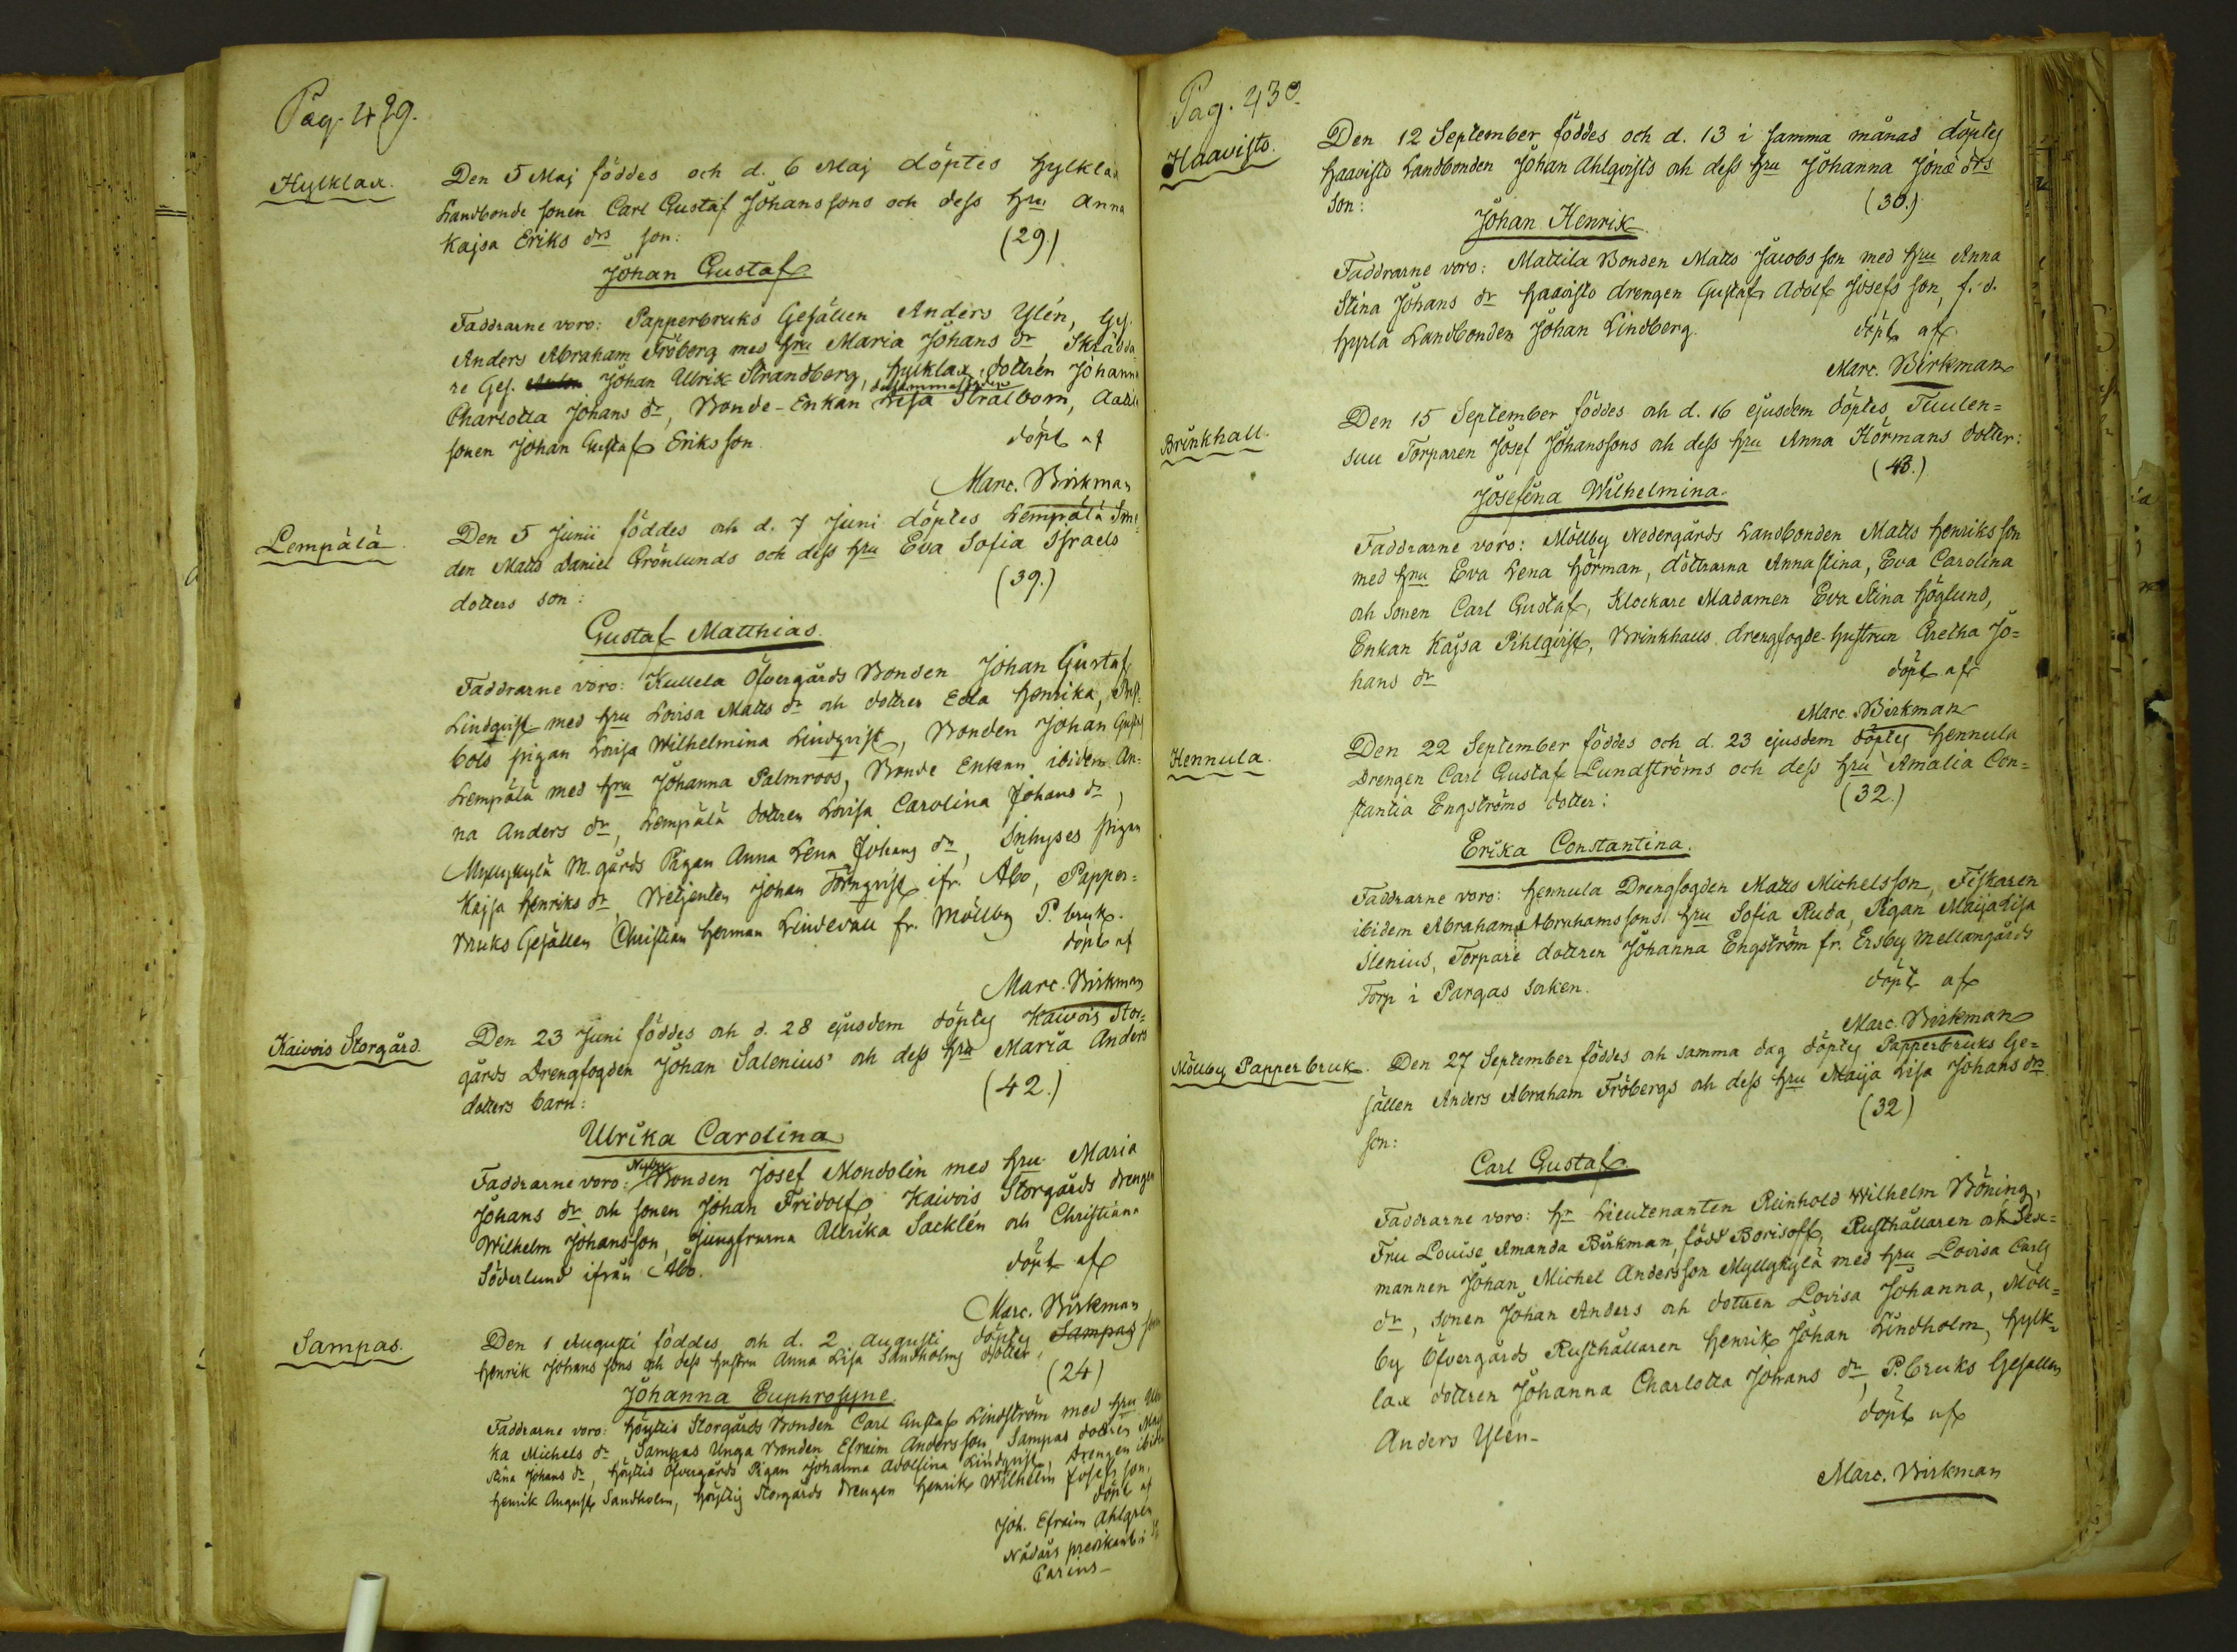 Pag. 429.
Hylklax.
Den 5 Maj föddes och d. 6 Maj döptes Hylklax
Landbonde sonen Carl Gustaf Johanssons och dess hru Anna
Kajsa Eriks drs son:
(29.)
Johan Gustaf
Faddrarne voro: Papperbruks Gesällen Anders Ylén, Ges.
Anders Abraham Fröberg med hru Maria Johans dr Skrädda
re Ges. Johan Ulrik Strandberg, Hylklax dottren Johanna
Charlotta Johans dr, Bonde-Enkan Lisa Strålbom,
sonen Johan Gustaf Eriksson.
döpt af
Marc. Birkman
Lempälä
Den 5 Junii föddes och d. 7 Juni döptes Lempälä
den Matts Daniel Grönlunds och dess hru Eva Sofia Israels
dotters son:
(39.)
Gustaf Matthias.
Faddrarne voro: Kullela Öfvergårds Bonden Johan Gustaf
Lindqvist med hru Lovisa Matts dr och dottren Edla Henrika,
böls pigan Lovisa Wilhelmina Lindqvist, Bonden Johan Gust.
Lempälä med hru Johanna Palmroos, Bonde Enkan ibidem An-
na Anders dr, Lempälä dottren Lovisa Carolina Johans dr,
Myllykylä M.gårds Pigan Anna Lena Johans dr, Inhyses pigan
Kajsa Henriks dr, Betjenten Johan Törnqvist ifr. Åbo, Papper-
bruks Gesällen Christian Herman Lindevall fr. Möllby P. bruk.
döpt af
Marc. Birkman
Kaivois Storgård.
Den 23 Juni föddes och d. 28 ejusdem döptes Kaivois Stor-
gårds Drengfogden Johan Salenius' och dess hru Maria Anders
dotters barn:
(42.)
Ulrika Carolina
Faddrarne voro: Nyby Bonden Josef Mondolin med hru Maria
Johans dr och sonen Johan Fridolf, Kaivois Storgårds drengen
Wilhelm Johansson, jungfrurna Ulrika Sacklén och Christina
Söderlund ifrån Åbo.
döpt af
Marc. Birkman
Sampas.
Den 1 Augusti föddes och d. 2 augusti döptes Sampas
Henrik Johanssons och dess hustru Anna Lisa Sandholms dotter,
(24)
Johanna Euphrosyne.
Faddrarne voro: Höyttis Storgårds Bonden Carl Gustaf Lindström med hru Ulri
ka Michels dr, Sampas Unga Bonden Efraim Andersson, Sampas dottren
Stina Johans dr, Höyttis Öfvergårds Pigan Johanna Adolfina Lindqvist, Drengen ibidem
Henrik August Sandholm, Höyttis Storgårds drengen Henrik Wilhelm Josefsson.
döpt af
Joh. Efraim Ahlgren
Nådårs predikant i
Carins-
Pag. 430.
Haavisto.
Den 12 September föddes och d. 13 i samma månad döptes
Haavisto Landbonden Johan Ahlqvists och dess hru Johanna Jonæ drs
Son:
(30.)
Johan Henrik.
Faddrarne voro: Mattila Bonden Matts Jacobsson med hru Anna
Stina Johans dr Haavisto drengen Gustaf Adolf Josefsson, f.d.
Hyrlä Landbonden Johan Lindberg.
döpt af
Marc. Birkman
Brinkhall.
Den 15 September föddes och d. 16 ejusdem döptes, Tuulen-
suu Torparen Josef Johanssons och dess hru Anna Hörmans dotter:
(43.)
Josefina Wilhelmina.
Faddrarne voro: Möllby Nedergårds Landbonden Matts Henriksson
med hru Eva Lena Hörman, döttrarna Annastina, Eva Carolina
och Sonen Carl Gustaf, Klockare Madamen Eva Stina Höglund,
Enkan Kajsa Pihlqvist, Brinkhalls drengfogde-hustrun Gretha Jo-
hans dr
döpt af
Marc. Birkman
Hennula.
Den 22 September föddes och d. 23 ejusdem döptes Hennula
Drengen Carl Gustaf Lundströms och dess hru Amalia Con-
stantia Engströms dotter:
(32.)
Erika Constantina.
Faddrarne voro: Hennula Drengfogden Matts Michelsson, Fiskaren
ibidem Abraham Abrahamssons hru Sofia Ruda, Pigan Maija Lisa
Stenius, Torpare dottren Johanna Engström fr. Ersby Mellangårds
Torp i Pargas Socken.
döpt af
Marc. Birkman
Möllby Papperbruk.
Den 27 September föddes och samma dag döptes Papperbruks Ge-
sällen Anders Abraham Fröbergs och dess hru Maija Lisa Johans drs
son:
(32)
Carl Gustaf.
Faddrarne voro: Hr Lieutenanten Reinhold Wilhelm Böning,
Fru Louise Amanda Birkman, född Borisoff, Rusthållaren och Sex-
mannen Johan Michel Andersson Myllykylä med hru Lovisa Carls
dr, sonen Johan Anders och dottren Lovisa Johanna, Möll-
by Öfvergårds Rusthållaren Henrik Johan Lindholm, Hylk-
lax dottren Johanna Charlotta Johans dr, P.bruks Gesällen
Anders Ylén-
döpt af
Marc. Birkman